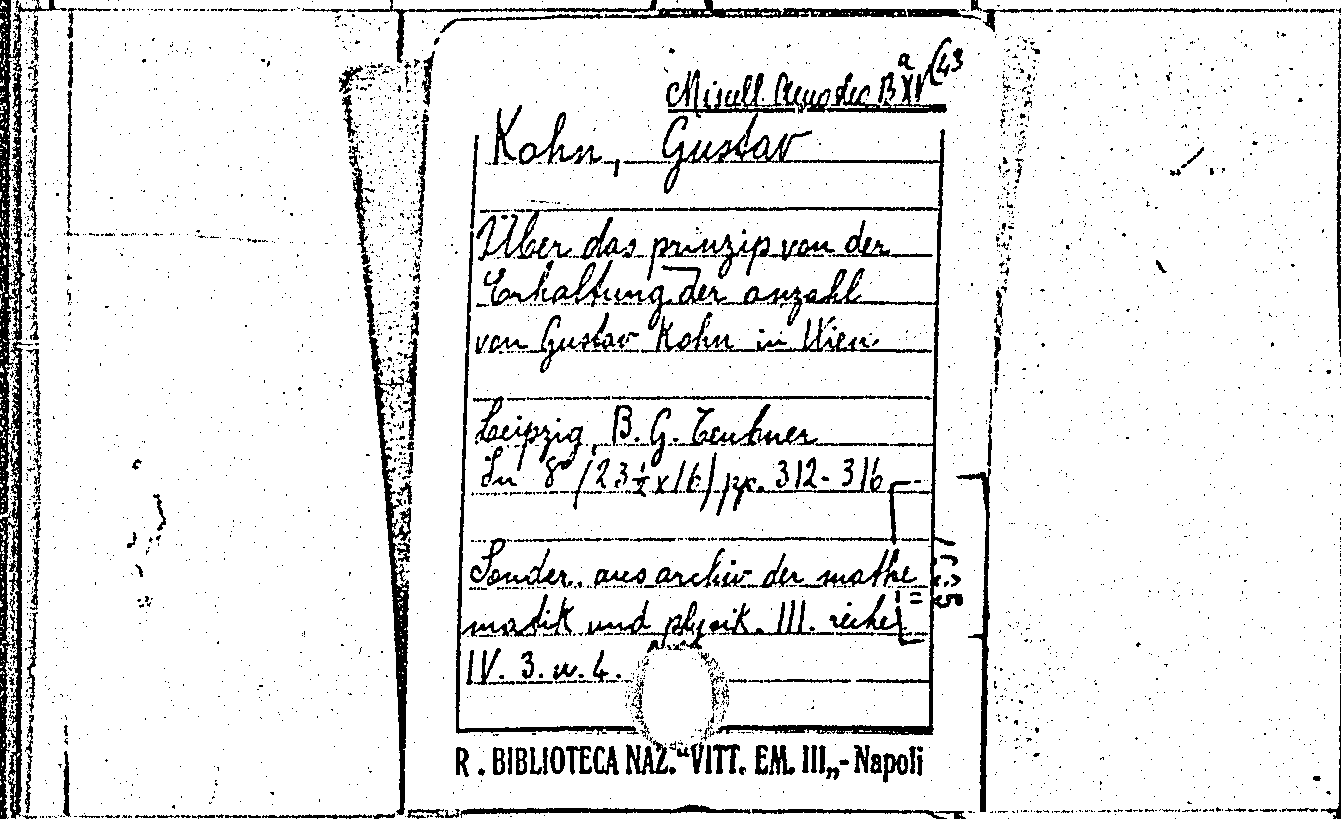 Misell. B XV a (43
Kohn, Gustav
Über das prinzip von der
Erhaltung der anzahl
von Gustav Kohn in Wien
Leipzig, B. G. Teubner
In 8° (23½ x 16) pp. 312-316
Sonder. aus archiv der mathe
matik und physik. III. reihe
IV. 3. u. 4.
R. BIBLIOTECA NAZ. "VITT. EM. III„ - Napoli